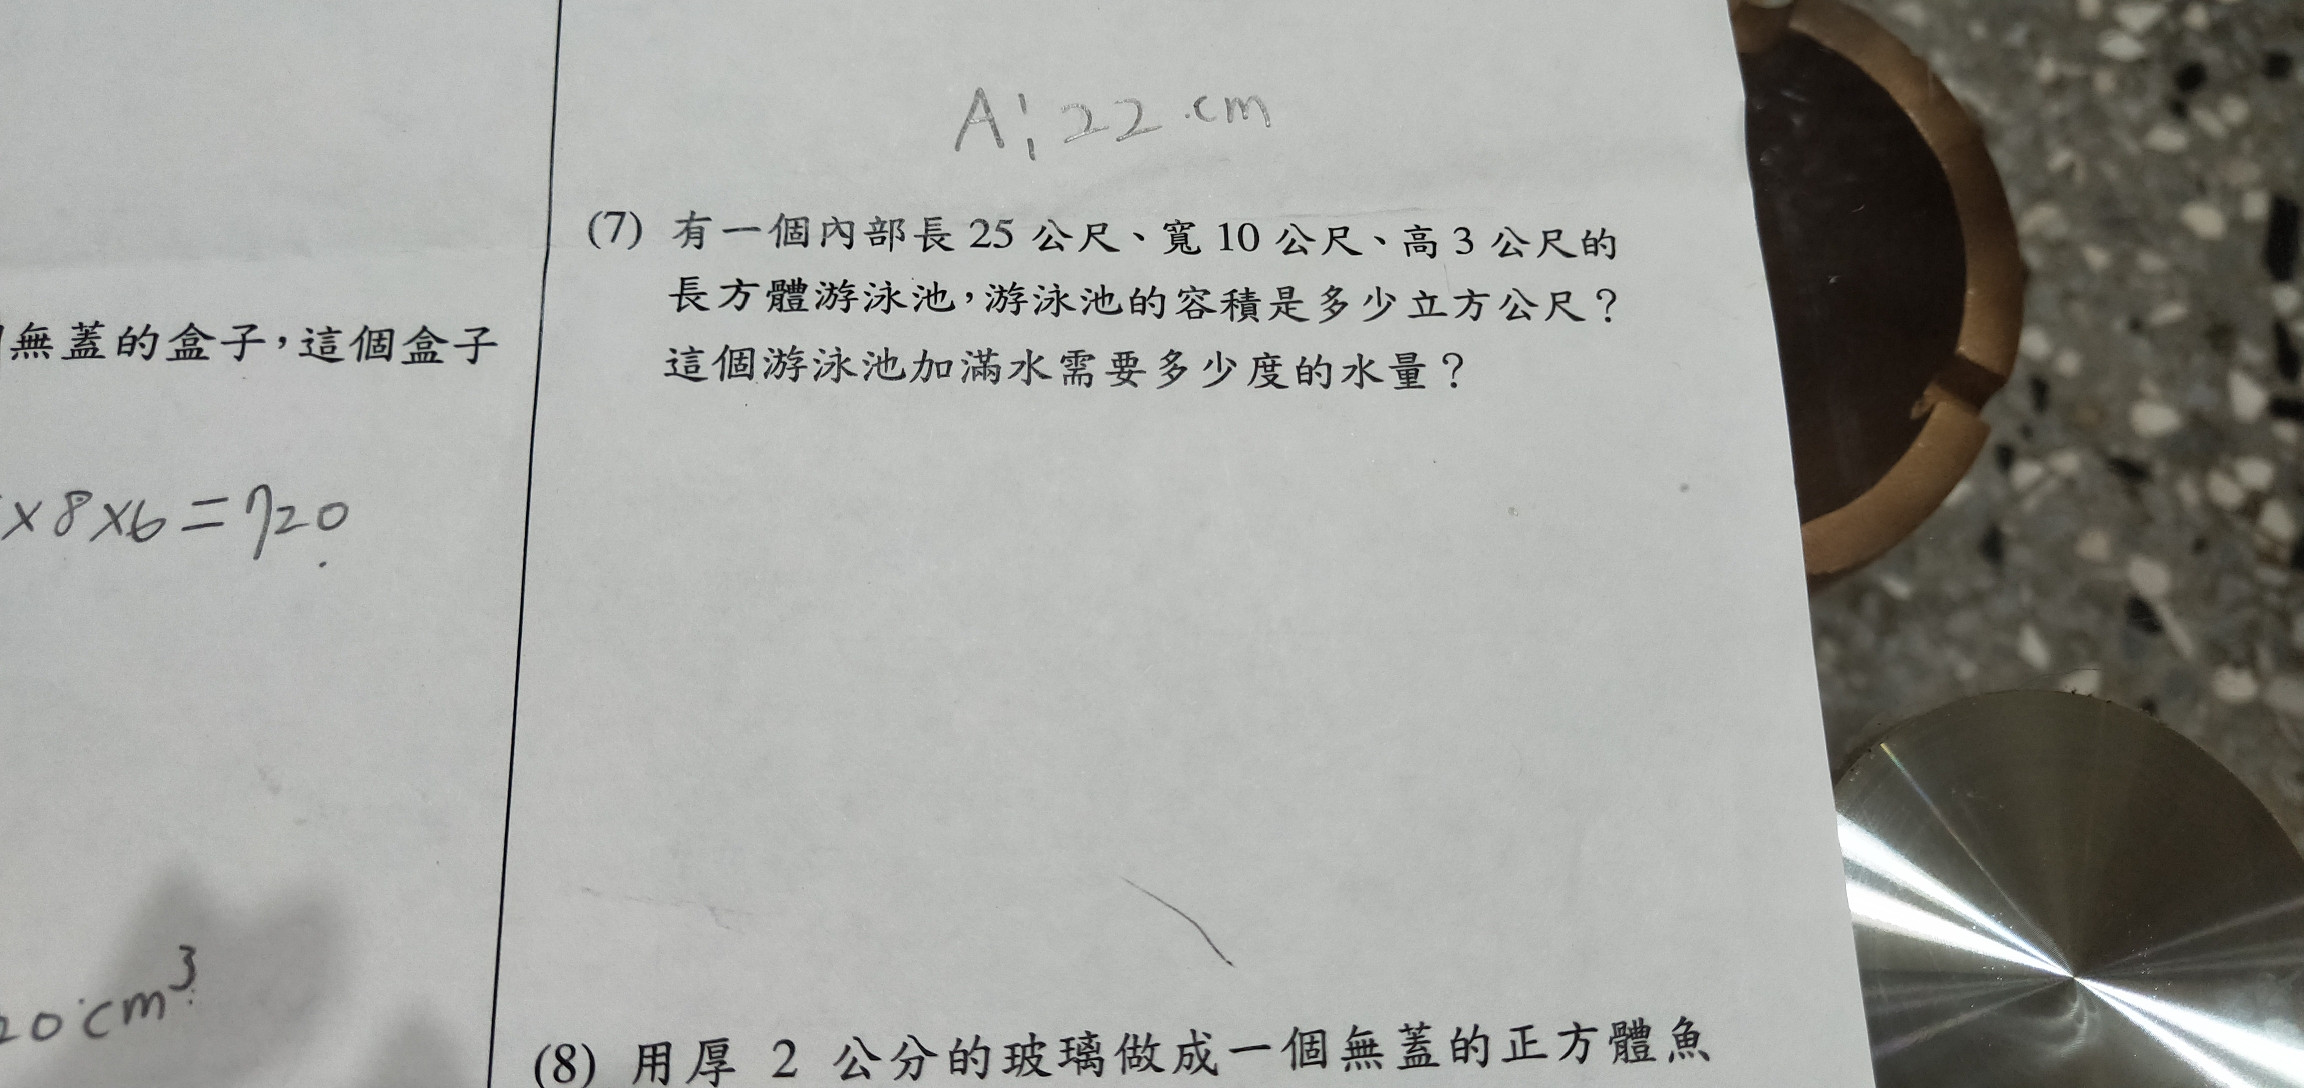 無蓋的盒子，這個盒子
×8×6=720
20cm³
A:22cm
(7) 有一個內部長 25 公尺、寬 10 公尺、高 3 公尺的
長方體游泳池，游泳池的容積是多少立方公尺？
這個游泳池加滿水需要多少度的水量？
(8) 用厚 2 公分的玻璃做成一個無蓋的正方體魚